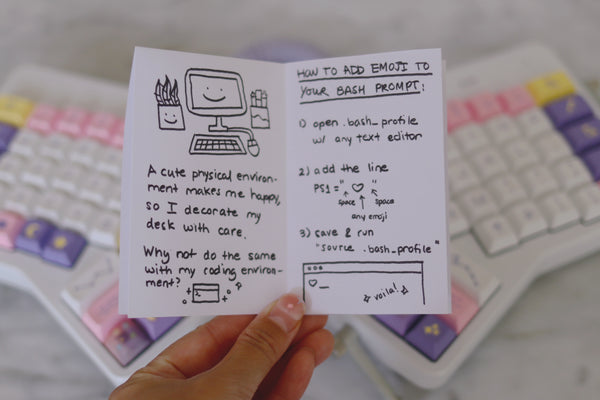 A cute physical environ-
ment makes me happy,
so I decorate my
desk with care.
Why not do the same
with my coding environ-
ment?
HOW TO ADD EMOJI TO
YOUR BASH PROMPT:
1) open .bash_profile
w/ any text editor
2) add the line
PS1="♡ "
space space
any emoji
3) save & run
"source .bash_profile"
♡_
voila!